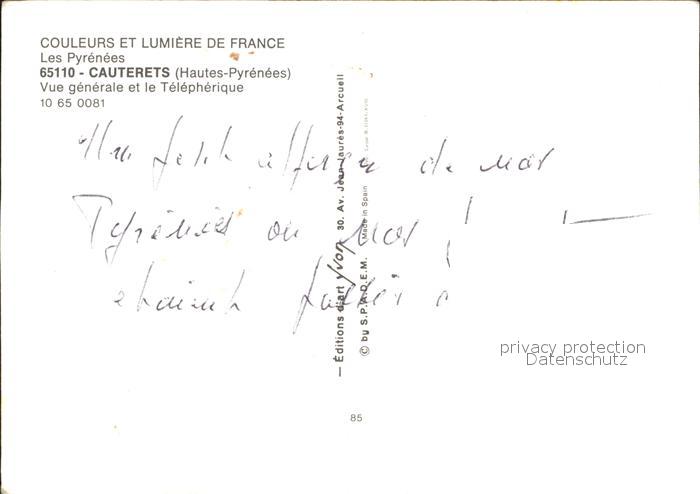 COULEURS ET LUMIÈRE DE FRANCE
Les Pyrénées
65110 - CAUTERETS (Hautes-Pyrénées)
Vue générale et le Téléphérique
10 65 0081
Un petit aperçu de nos
Pyrénées où nos
étaient
— Éditions d'art Yvon 30. Av. Jean-Jaurès-94-Arcueil
© by S.P.A.D.E.M. Made in Spain
privacy protection
Datenschutz
85